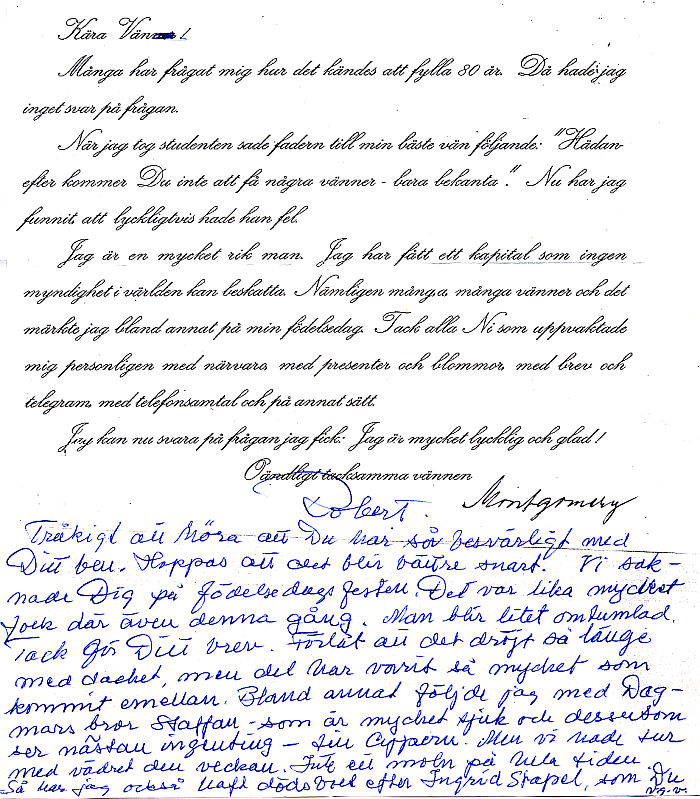 Kära Vänner!
Många har frågat mig hur det kändes att fylla 80 år. Då hade jag
inget svar på frågan.
När jag tog studenten sade fadern till min bäste vän följande: "Hädan-
efter kommer Du inte att få några vänner - bara bekanta". Nu har jag
funnit, att lyckligtvis hade han fel.
Jag är en mycket rik man. Jag har fått ett kapital som ingen
myndighet i världen kan beskatta. Nämligen många, många vänner och det
märkte jag bland annat på min födelsedag. Tack alla Ni som uppvaktade
mig personligen med närvaro, med presenter och blommor, med brev och
telegram, med telefonsamtal och på annat sätt.
Jag kan nu svara på frågan jag fick: Jag är mycket lycklig och glad!
Oändligt tacksamma vännen
Robert. Montgomery
Tråkigt att höra att Du har så besvärligt med
Ditt ben. Hoppas att det blir bättre snart. Vi sak-
nade Dig på födelsedagsfesten. Det var lika mycket
folk där även denna gång. Man blir litet omtumlad.
Tack för Ditt brev. Förlåt att det dröjt så länge
med tacket, men det har varit så mycket som
kommit emellan. Bland annat följde jag med Dag-
mars bror Staffan - som är mycket sjuk och dessutom
ser nästan ingenting - till Cypern. Men vi hade tur
med vädret den veckan. Inte ett moln på hela tiden.
Så har jag också haft dödsboet efter Ingrid Stapel, som Du
v.g.v.